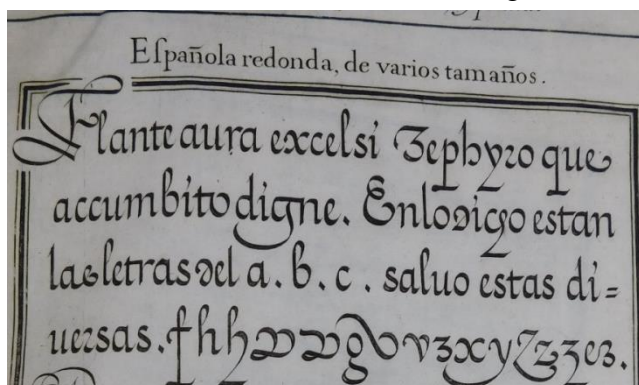 Eſpañola redonda, de varios tamaños.
Flante aura excelsi Zephyro que
accumbito digne. Enlodicho estan
las letras del a. b. c. saluo estas di=
uersas.